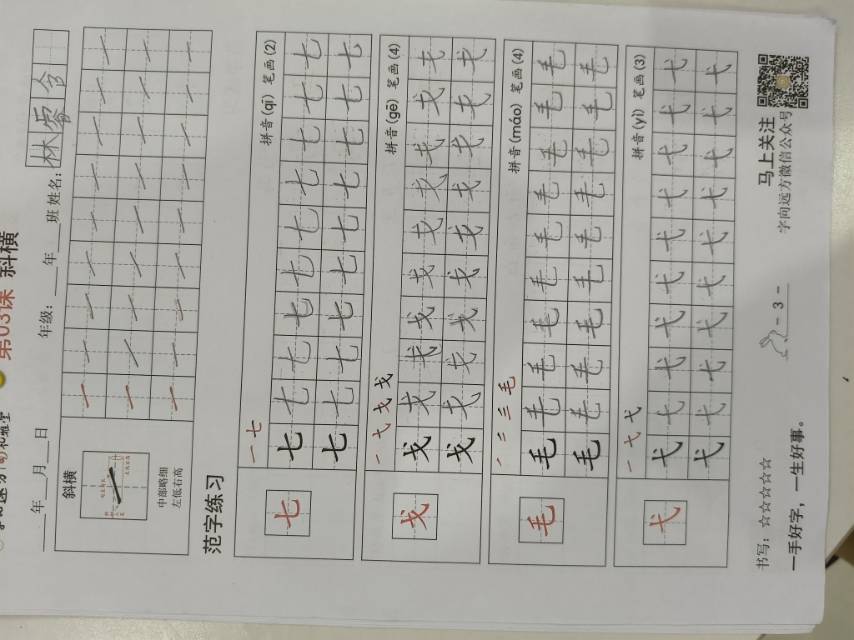 第03课 斜横
年 月 日 年级： 年 班 姓名：林
斜横
中部略细
左低右高
一 一 一 一 一 一 一 一 一
一 一 一 一 一 一 一 一 一
一 一 一 一 一 一 一 一 一
范字练习
一 七 拼音(qī) 笔画(2)
七
七 七 七 七 七 七 七 七 七 七
七 七 七 七 七 七 七 七 七 七
拼音(gē) 笔画(4)
戈
戈 戈 戈 戈 戈 戈 戈 戈 戈 戈
戈 戈 戈 戈 戈 戈 戈 戈 戈 戈
毛 拼音(máo) 笔画(4)
毛
毛 毛 毛 毛 毛 毛 毛 毛 毛 毛
毛 毛 毛 毛 毛 毛 毛 毛 毛 毛
一 弋 弋 拼音(yì) 笔画(3)
弋
弋 弋 弋 弋 弋 弋 弋 弋 弋 弋
弋 弋 弋 弋 弋 弋 弋 弋 弋 弋
书写：☆☆☆☆☆ 马上关注
一手好字，一生好事。 - 3 - 字向远方微信公众号